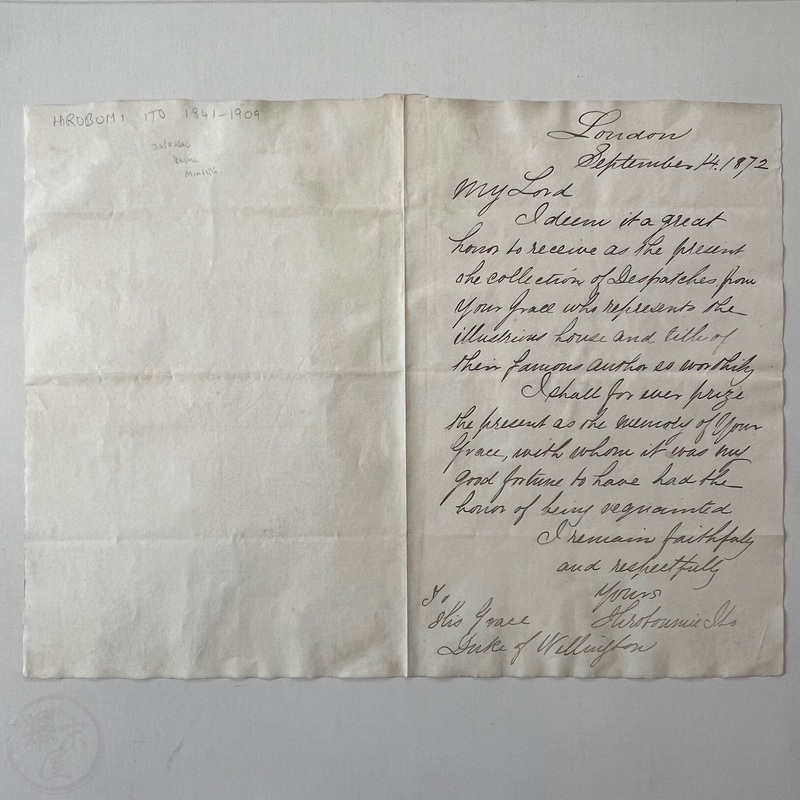 HIROBUMI ITO 1841-1909
London
September 14. 1872
My Lord
I deem it a great
honor to receive as the present
the collection of Despatches from
Your Grace who represents the
illustrious house and title of
their famous author so worthily
I shall for ever prize
the present as the memory of Your
Grace, with whom it was my
good fortune to have had the
honor of being acquainted
I remain faithfuly
and respectfully
Yours
To
His Grace
Hiroboumie Ito
Duke of Wellington